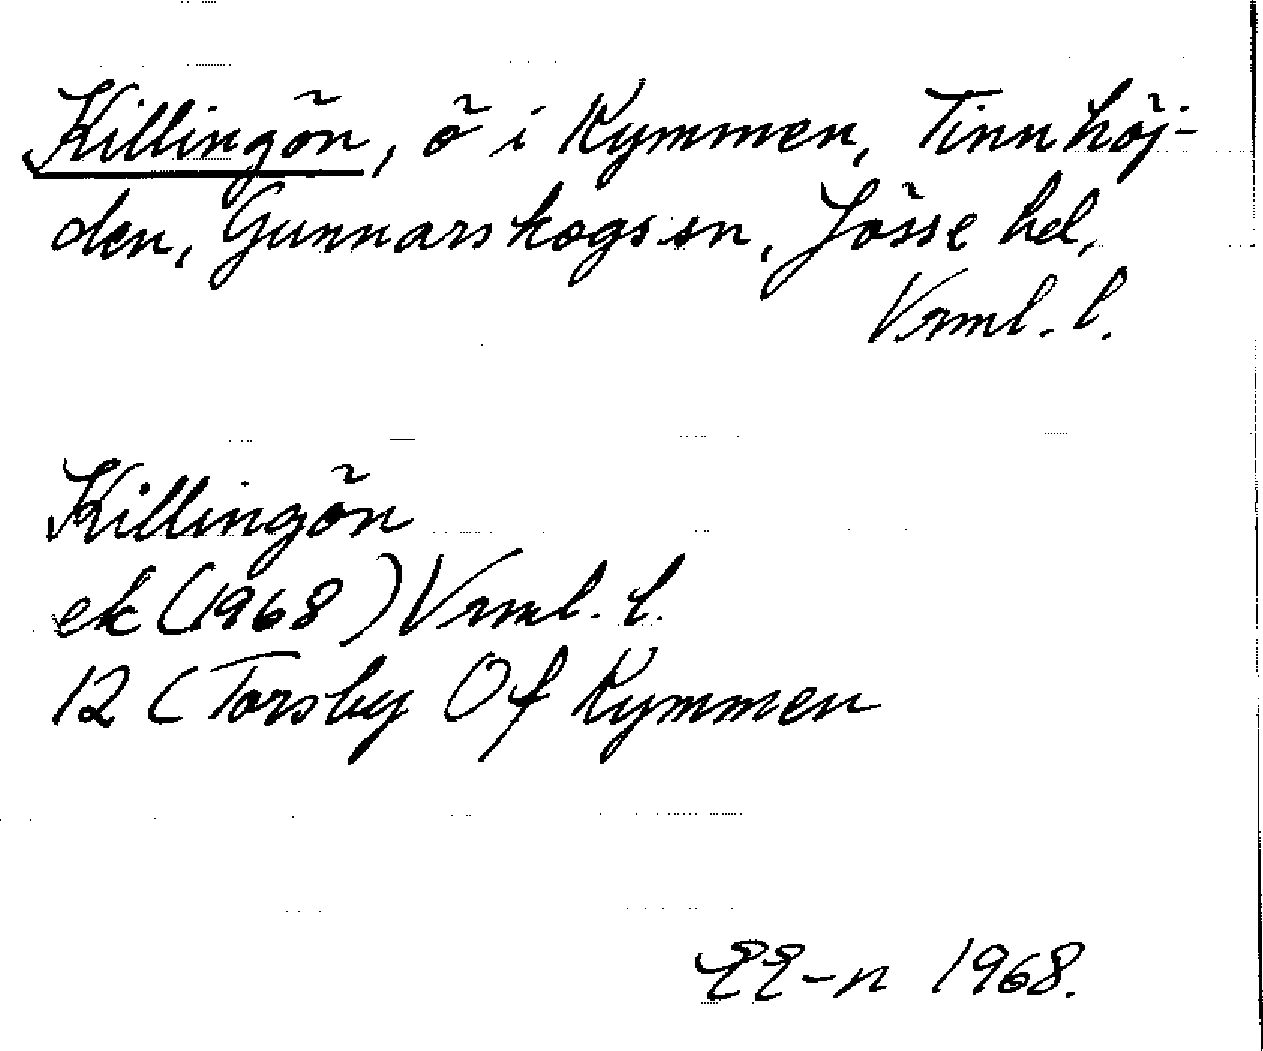 Killingön, ö i Kymmen, Tinnhöj-
den, Gunnarskogs sn, Jösse hd,
Vrml. l.
Killingön
ek (1968) Vrml. l.
12 C Torsby Of Kymmen
EE-n 1968.